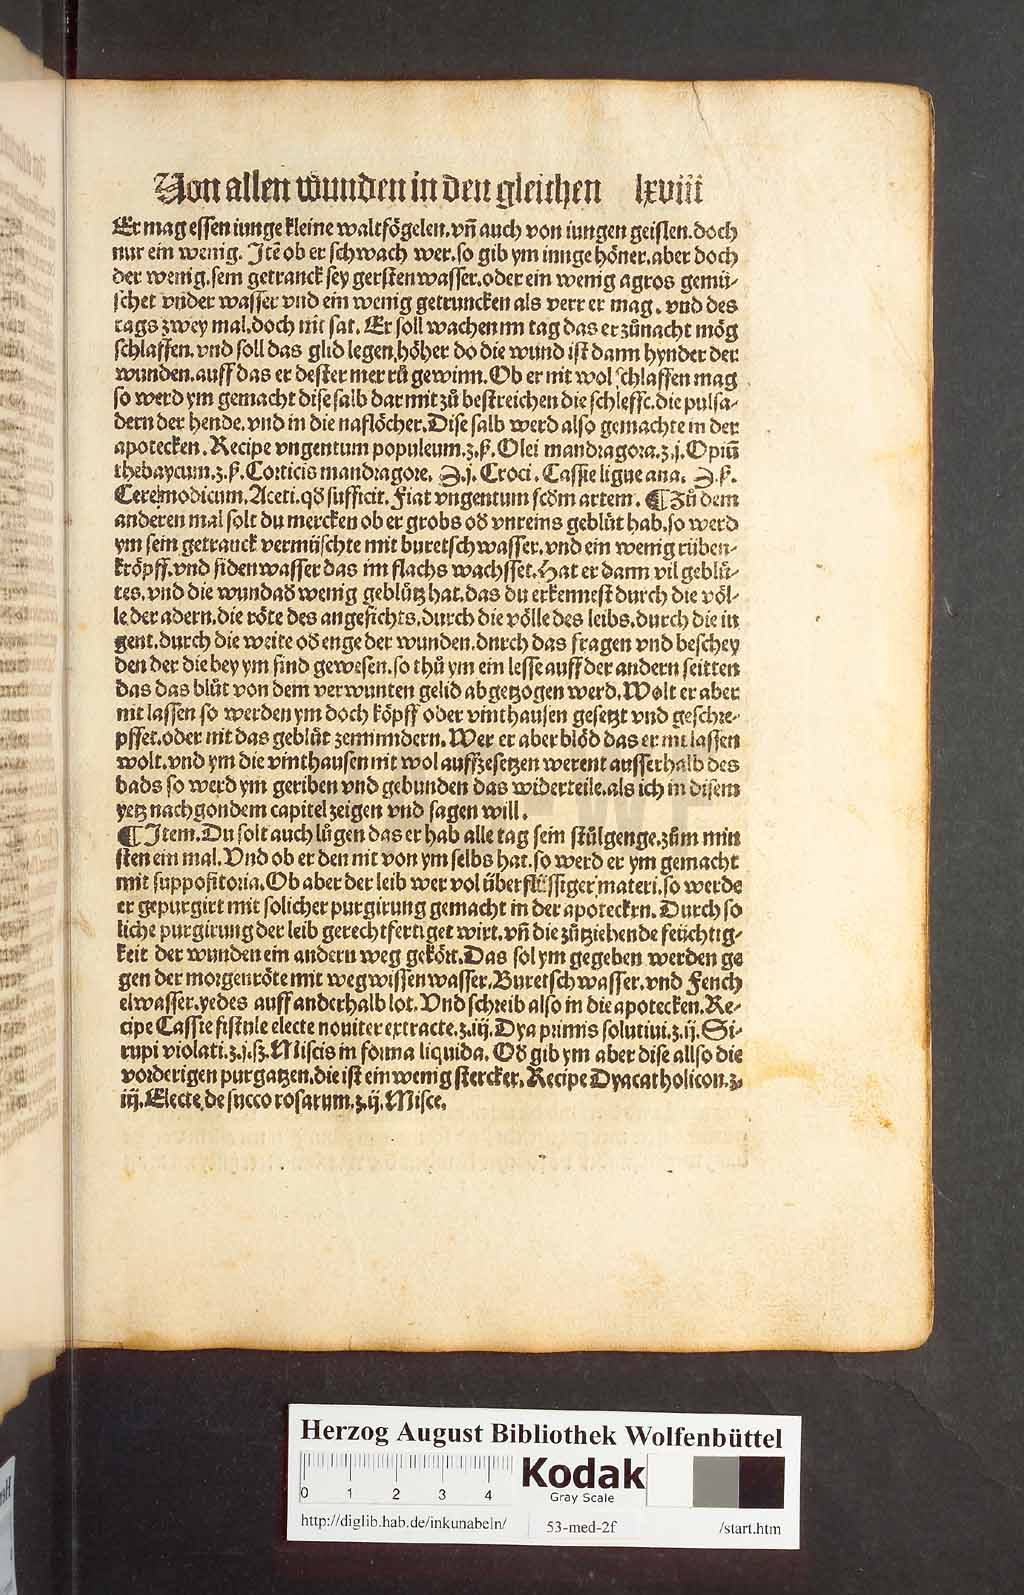 Von allen wunden in den gleichen lxviii
Er mag essen iunge kleine waltfögelen.vñ auch von iungen geislen.doch
nur ein wenig. Jtẽ ob er schwach wer.so gib ym iunge höner.aber doch
der wenig.sein getranck sey gerstenwasser.oder ein wenig agros gemü-
schet vnder wasser vnd ein wenig getruncken als verr er mag. vnd des
tags zwey mal.doch nit sat. Er soll wachen im tag das er zůnacht mög
schlaffen.vnd soll das glid legen höher do die wund ist dann hynder der
wunden.auff das er dester mer rů gewinn.Ob er nit wol schlaffen mag
so werd ym gemacht dise salb dar mit zů bestreichen die schleffe.die pulsa-
dern der hende.vnd in die naslöcher.Dise salb werd also gemachte in der
apotecken.Recipe vngentum populeum.ʒ.ß.Olei mandragora.ʒ.j.Opiũ
thebaycum.ʒ.ß.Corticis mandragore. ℈.j.Croci.Cassie ligne ana. ℈.ß.
Cere modicum.Aceti.qđ sufficit.Fiat vngentum scđm artem. ¶Zů dem
anderen mal solt du mercken ob er grobs oď vnreins geblůt hab.so werd
ym sein getranck vermüschte mit buretschwasser.vnd ein wenig rüben-
kröpff.vnd sidenwasser das im flachs wachsset.Hat er dann vil geblů-
tes.vnd die wundaď wenig geblůtz hat.das du erkennest durch die völ-
le der adern.die röte des angesichts.durch die völle des leibs.durch die iu
gent.durch die weite oď enge der wunden.durch das fragen vnd beschey
den der die bey ym sind gewesen.so thů ym ein lesse auff der andern seitten
das das blůt von dem verwunten gelid abgetzogen werd.Wolt er aber
nit lassen so werden ym doch köpff oder vinthausen gesetzt vnd geschre-
pffet.oder nit das geblůt zemindern.Wer er aber blöd das er nit lassen
wolt.vnd ym die vinthausen nit wol auffzesetzen werent ausserhalb des
bads so werd ym geriben vnd gebunden das widerteile.als ich in disem
yetz nachgondem capitel zeigen vnd sagen will.
¶Jtem.Du solt auch lůgen das er hab alle tag sein stůlgenge.zům min
sten ein mal.Vnd ob er den nit von ym selbs hat.so werd er ym gemacht
mit suppositoria.Ob aber der leib wer vol überflüssiger materi.so werde
er gepurgirt mit solicher purgirung gemacht in der apoteckrn.Durch so
liche purgirung der leib gerechtfertiget wirt.vñ die zůtziehende feüchtig-
keit der wunden ein andern weg gekört.Das sol ym gegeben werden ge
gen der morgenröte mit wegwissenwasser.Buretschwasser.vnd Fench
elwasser.yedes auff anderhalb lot.Vnd schreib also in die apotecken.Re-
cipe Cassie fistule electe noviter extracte.ʒ.iij.Dya prunis solutiui.ʒ.ij.Si-
rupi violati.ʒ.j.ß.Miscis in forma liquida. Oď gib ym aber dise allso die
vorderigen purgatzen.die ist ein wenig stercker.Recipe Dyacatholicon.ʒ.
iij.Electe.de succo rosarum.ʒ.ij.Misce.
Herzog August Bibliothek Wolfenbüttel
0 1 2 3 4
Kodak
Gray Scale
http://diglib.hab.de/inkunabeln/ 53-med-2f /start.htm